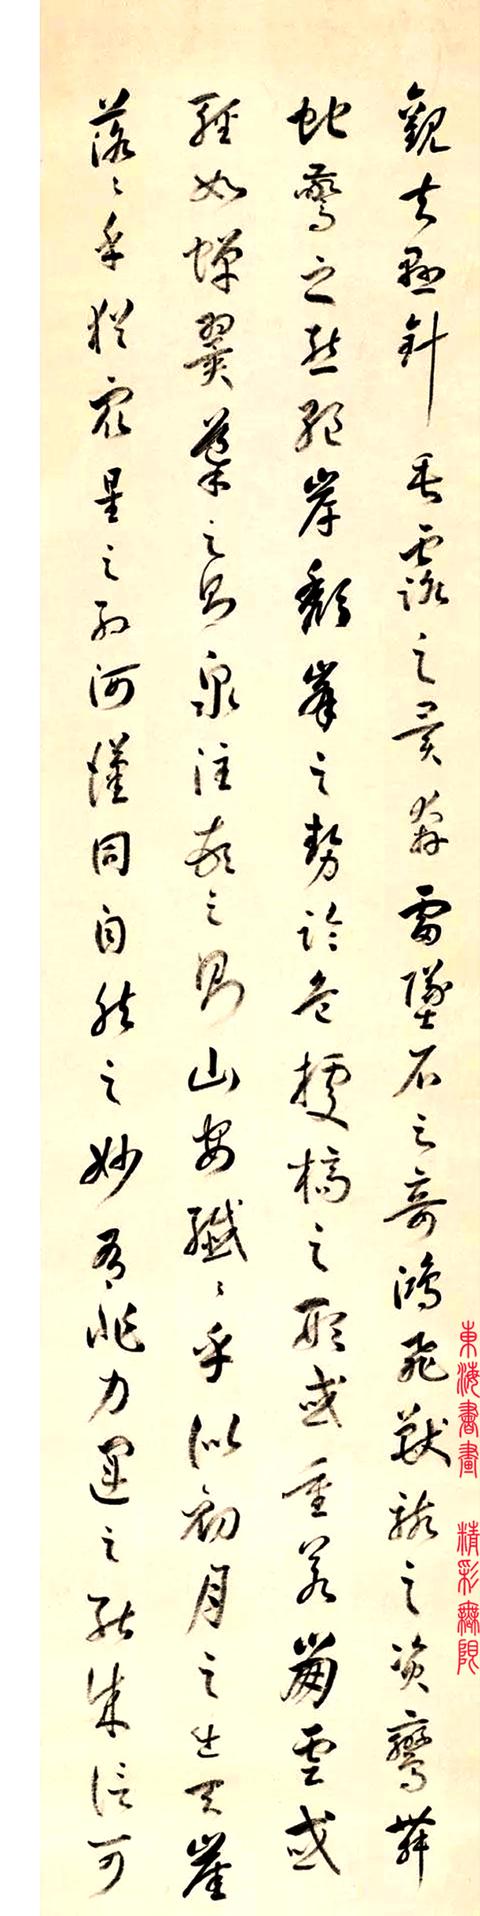 觀夫懸針垂露之異奔雷墜石之奇鴻飛獸駭之資鸞舞
蛇驚之態絕岸頹峯之勢臨危據槁之形或重若崩雲或
輕如蟬翼導之則泉注頓之則山安纖〻乎似初月之出天崖
落〻乎猶眾星之列河漢同自然之妙有非力運之能成信可
東海書畫 精彩無限